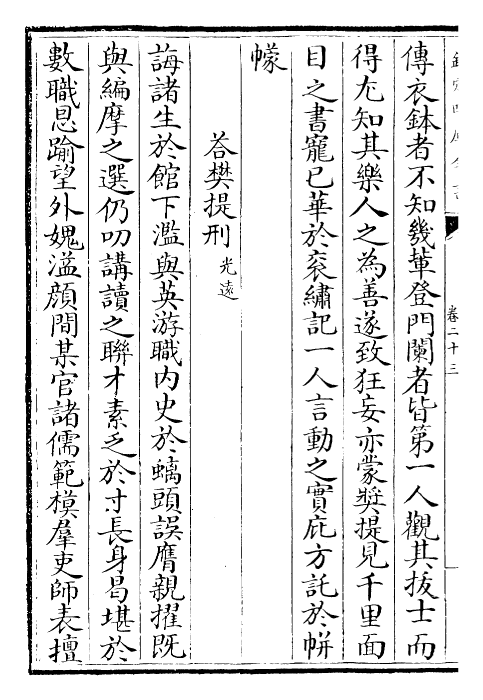 欽定四庫全書
卷二十三
傳衣鉢者不知幾輩登門闌者皆第一人觀其拔士而
得尤知其樂人之為善遂致狂妄亦蒙奬提見千里面
目之書寵已華於衮繡記一人言動之實庇方託於帡
幪
荅樊提刑光遠
誨諸生於館下濫與英游職內史於螭頭誤膺親擢既
與編摩之選仍叨講讀之聯才素乏於寸長身曷堪於
數職恩踰望外媿溢顔間某官諸儒範模羣吏師表擅